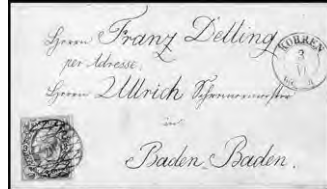 Herrn Franz Delling
per Adresse.
Herrn Ullrich
in
Baden-Baden.
KOHREN
3
VI